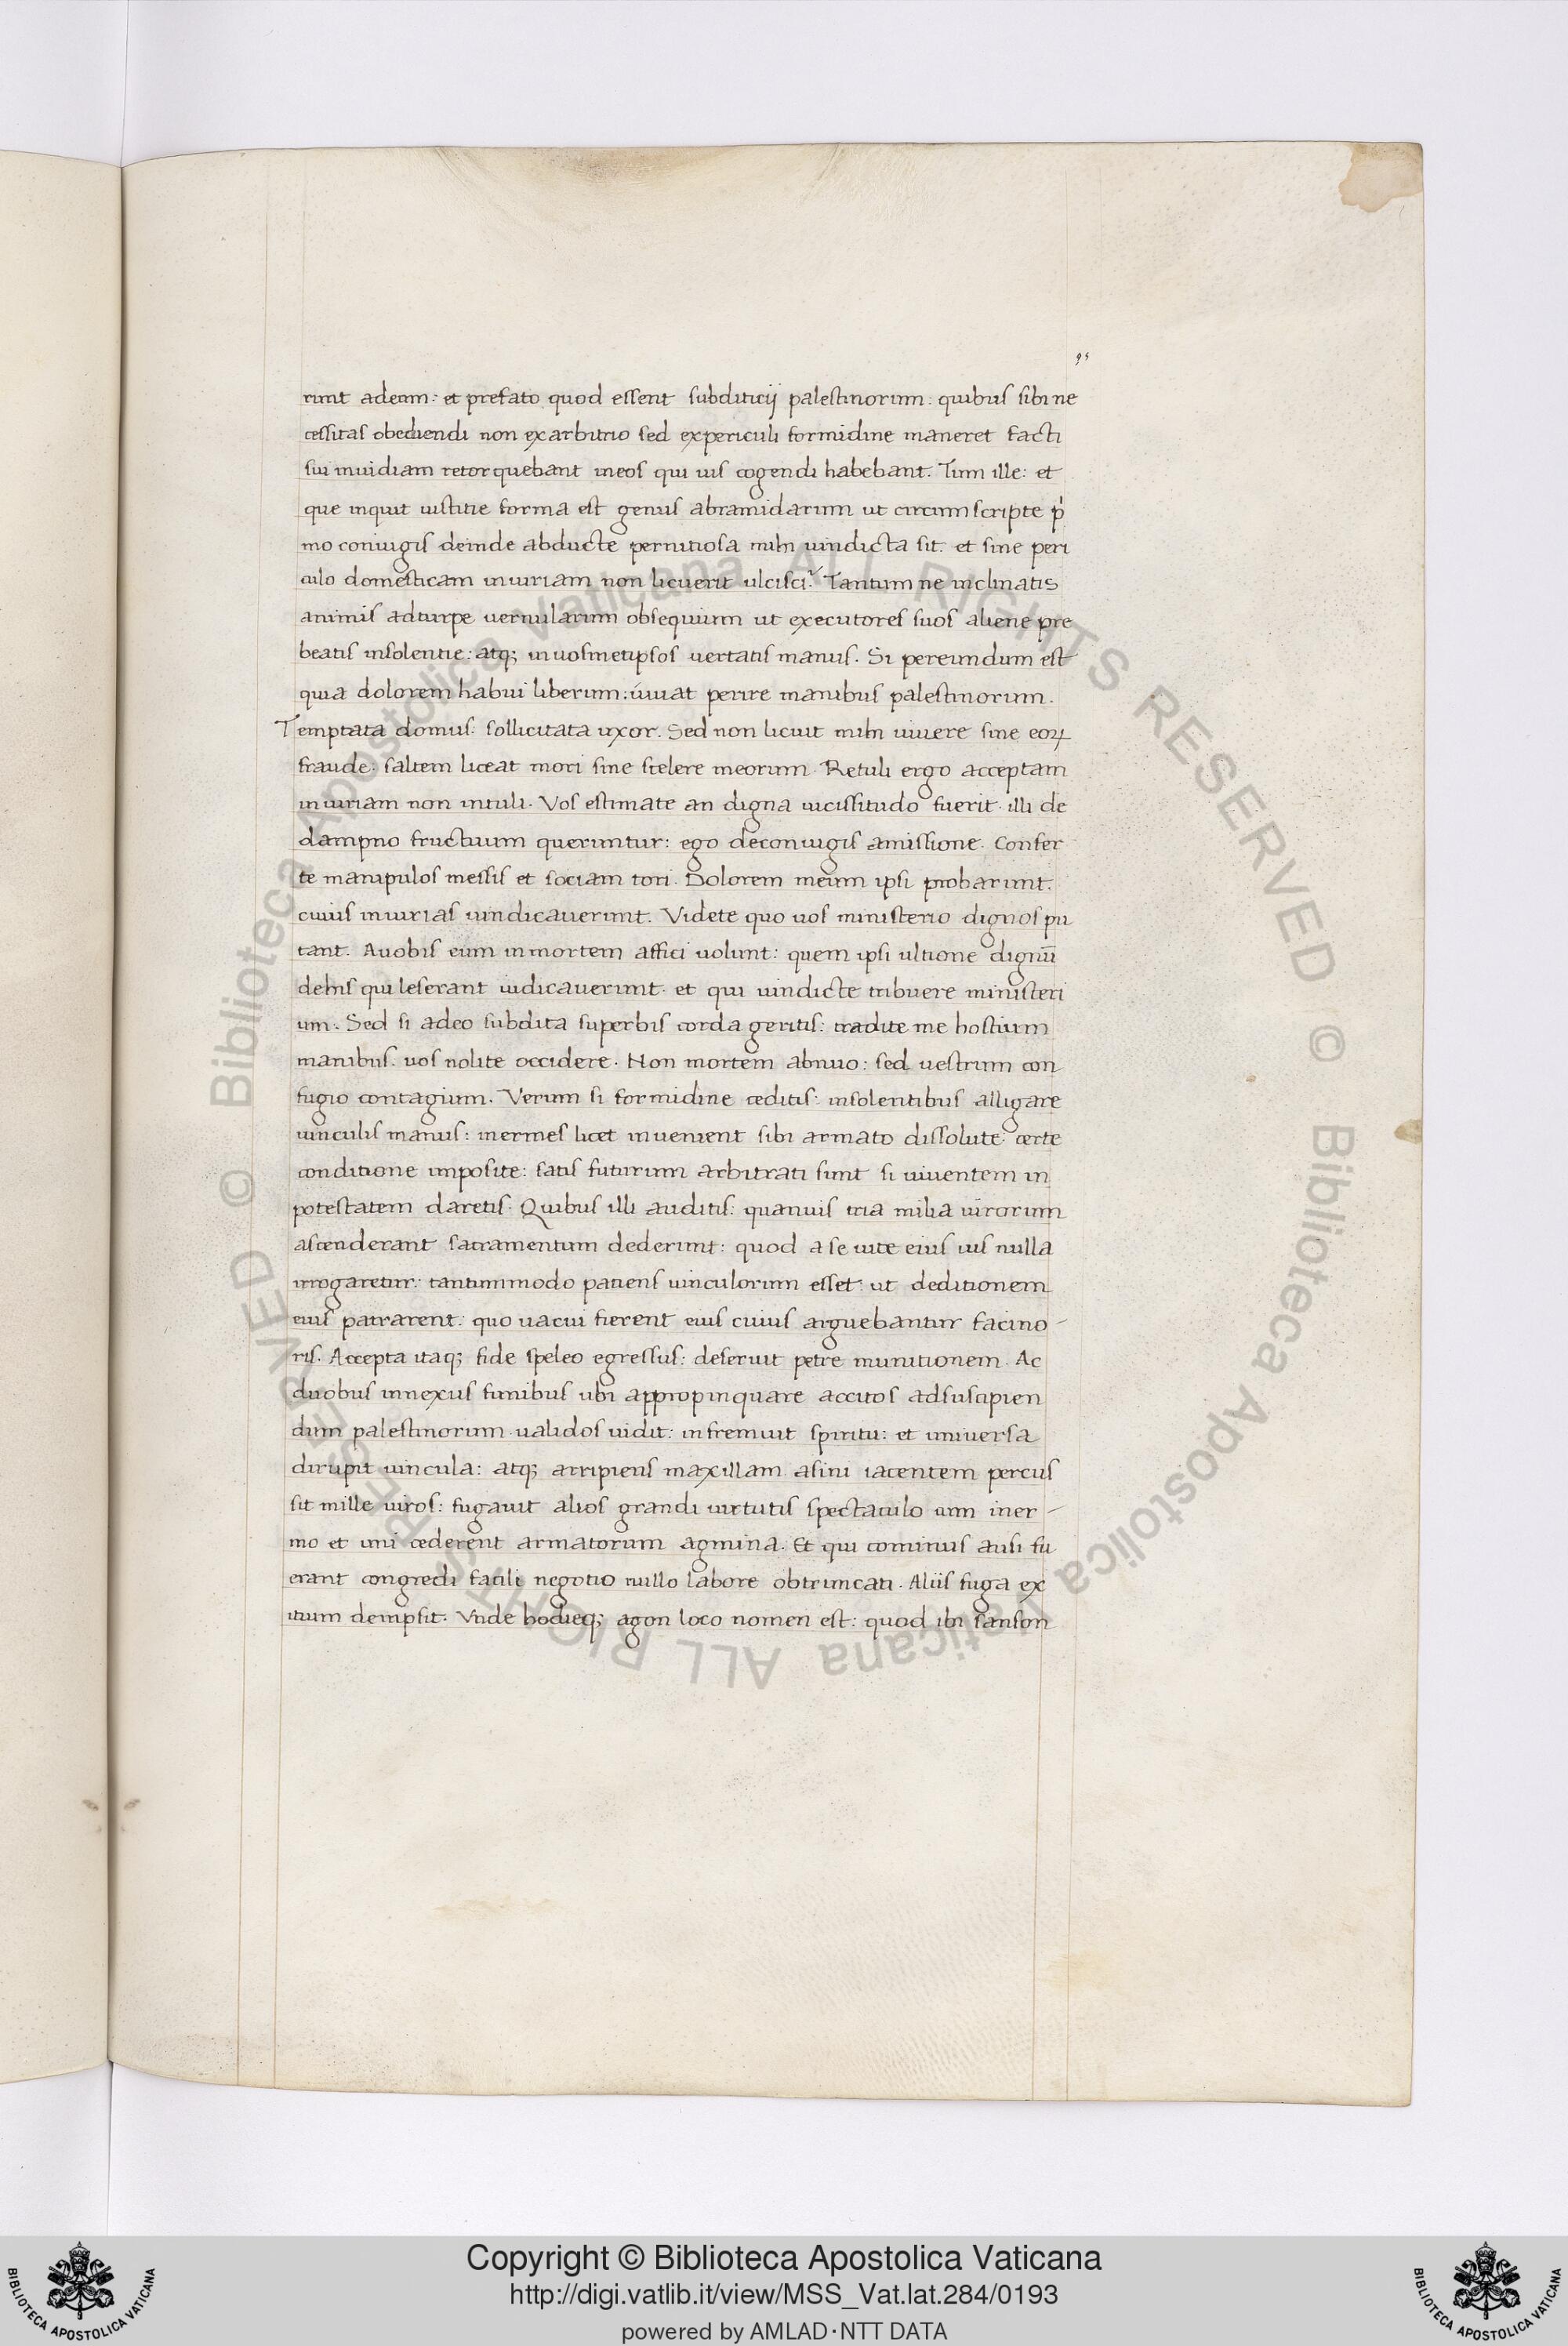 95
runt adeum: et prefato quod essent subditicij palestinorum: quibus sibi ne
cessitas obediendi non exarbitrio sed expericuli formidine maneret facti
sui inuidiam retorquebant ineos qui uis cogendi habebant. Tum ille: et
que inquit iustitie forma est genus abramidarum ut circumscripte p̍
mo coniugis deinde abducte pernitiosa mihi uindicta sit. et sine peri
culo domesticam iniuriam non licuerit ulcisci? Tantum ne inclinatis
animis adturpe uernularum obsequium ut executores suos aliene pre
beatis insolentie: atq; inuosmetipsos uertatis manus. Si pereundum est
quia dolorem habui liberum: iuuat perire manibus palestinorum.
Temptata domus: sollicitata uxor. Sed non licuit mihi uiuere sine eoꝝ
fraude: saltem liceat mori sine scelere meorum. Retuli ergo acceptam
iniuriam non intuli. Vos estimate an digna uicissitudo fuerit. illi de
dampno fructuum queruntur: ego deconiugis amissione. Confer
te manipulos messis et sociam tori. Dolorem meum ipsi probarunt.
cuius iniurias uindicauerunt. Videte quo uos ministerio dignos pu
tant. Auobis eum inmortem affici uolunt: quem ipsi ultione dignū
dehis qui leserant iudicauerunt. et qui uindicte tribuere ministeri
um. Sed si adeo subdita superbis corda geritis: tradite me hostium
manibus. uos nolite occidere. Non mortem abnuo: sed uestrum con
fugio contagium. Verum si formidine ceditis: insolentibus alligare
uinculis manus: inermes licet inuenient sibi armato dissolute certe
conditione imposite: satis futurum arbitrati sunt si uiuentem in
potestatem daretis. Quibus illi auditis: quanuis tria milia uirorum
ascenderant sacramentum dederunt: quod a se uite eius uis nulla
irrogaretur: tantummodo patiens uinculorum esset ut deditionem
eius patrarent: quo uacui fierent eius cuius arguebantur facino-
ris. Accepta itaq; fide speleo egressus: deseruit petre munitionem. Ac
duobus innexus funibus ubi appropinquare accitos adsuscipien
dum palestinorum ualidos uidit: infremuit spiritu: et uniuersa
dirupit uincula: atq; arripiens maxillam asini iacentem percus
sit mille uiros: fugauit alios grandi uirtutis spectaculo cum iner-
mo et uni cederent armatorum agmina. Et qui cominus ausi fu
erant congredi facili negotio nullo labore obtruncati. Aliis fuga ex
itium dempsit. Vnde hodieq; agon loco nomen est: quod ibi sanson
© Biblioteca Apostolica Vaticana ALL RIGHTS RESERVED © Biblioteca Apostolica Vaticana ALL RIGHTS RESERVED
Copyright © Biblioteca Apostolica Vaticana
http://digi.vatlib.it/view/MSS_Vat.lat.284/0193
powered by AMLAD·NTT DATA
BIBLIOTECA APOSTOLICA VATICANA
BIBLIOTECA APOSTOLICA VATICANA